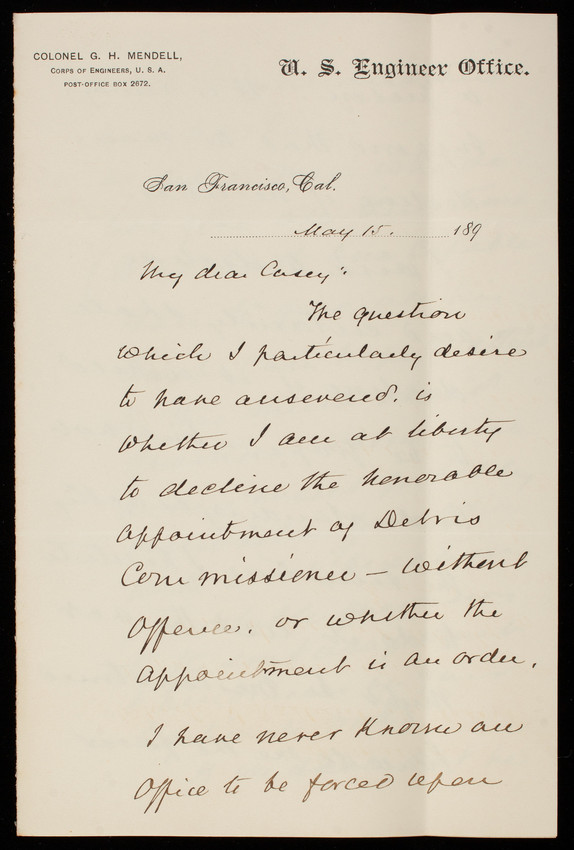 COLONEL G. H. MENDELL,
CORPS OF ENGINEERS, U. S. A.
POST-OFFICE BOX 2672.
U. S. Engineer Office.
San Francisco, Cal.
May 15. 189
My dear Casey:
The question
which I particularly desire
to have answered, is
whether I am at liberty
to decline the honorable
appointment of Debris
Commissioner — without
offence, or whether the
appointment is an order.
I have never known an
office to be forced upon